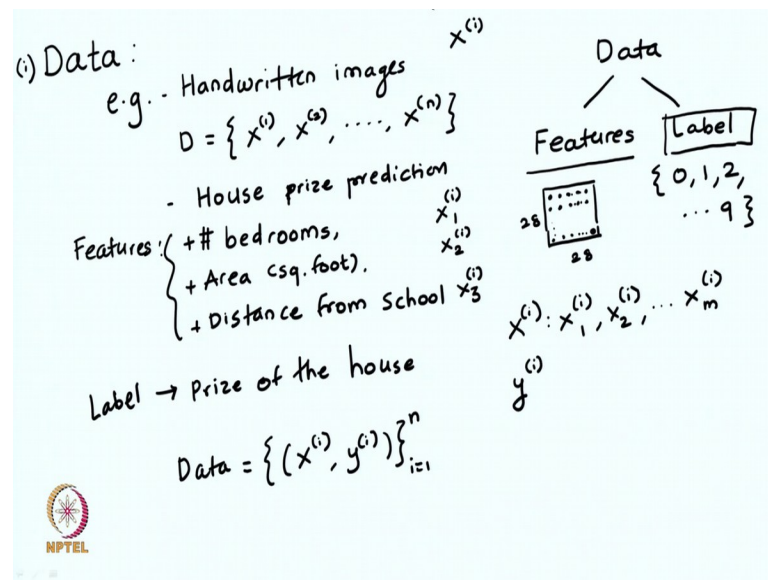 (i) Data :
e.g. - Handwritten images x^(i)
D = { x^(1), x^(2), ...., x^(n) }
- House prize prediction
Features : { + # bedrooms, x_1^(i)
+ Area (sq.foot). x_2^(i)
+ Distance from School x_3^(i)
Label → Prize of the house
Data = { (x^(i), y^(i)) }_{i=1}^n
Data
Features Label
28
28
{ 0, 1, 2,
... 9 }
x^(i) : x_1^(i), x_2^(i), ... x_m^(i)
y^(i)
NPTEL